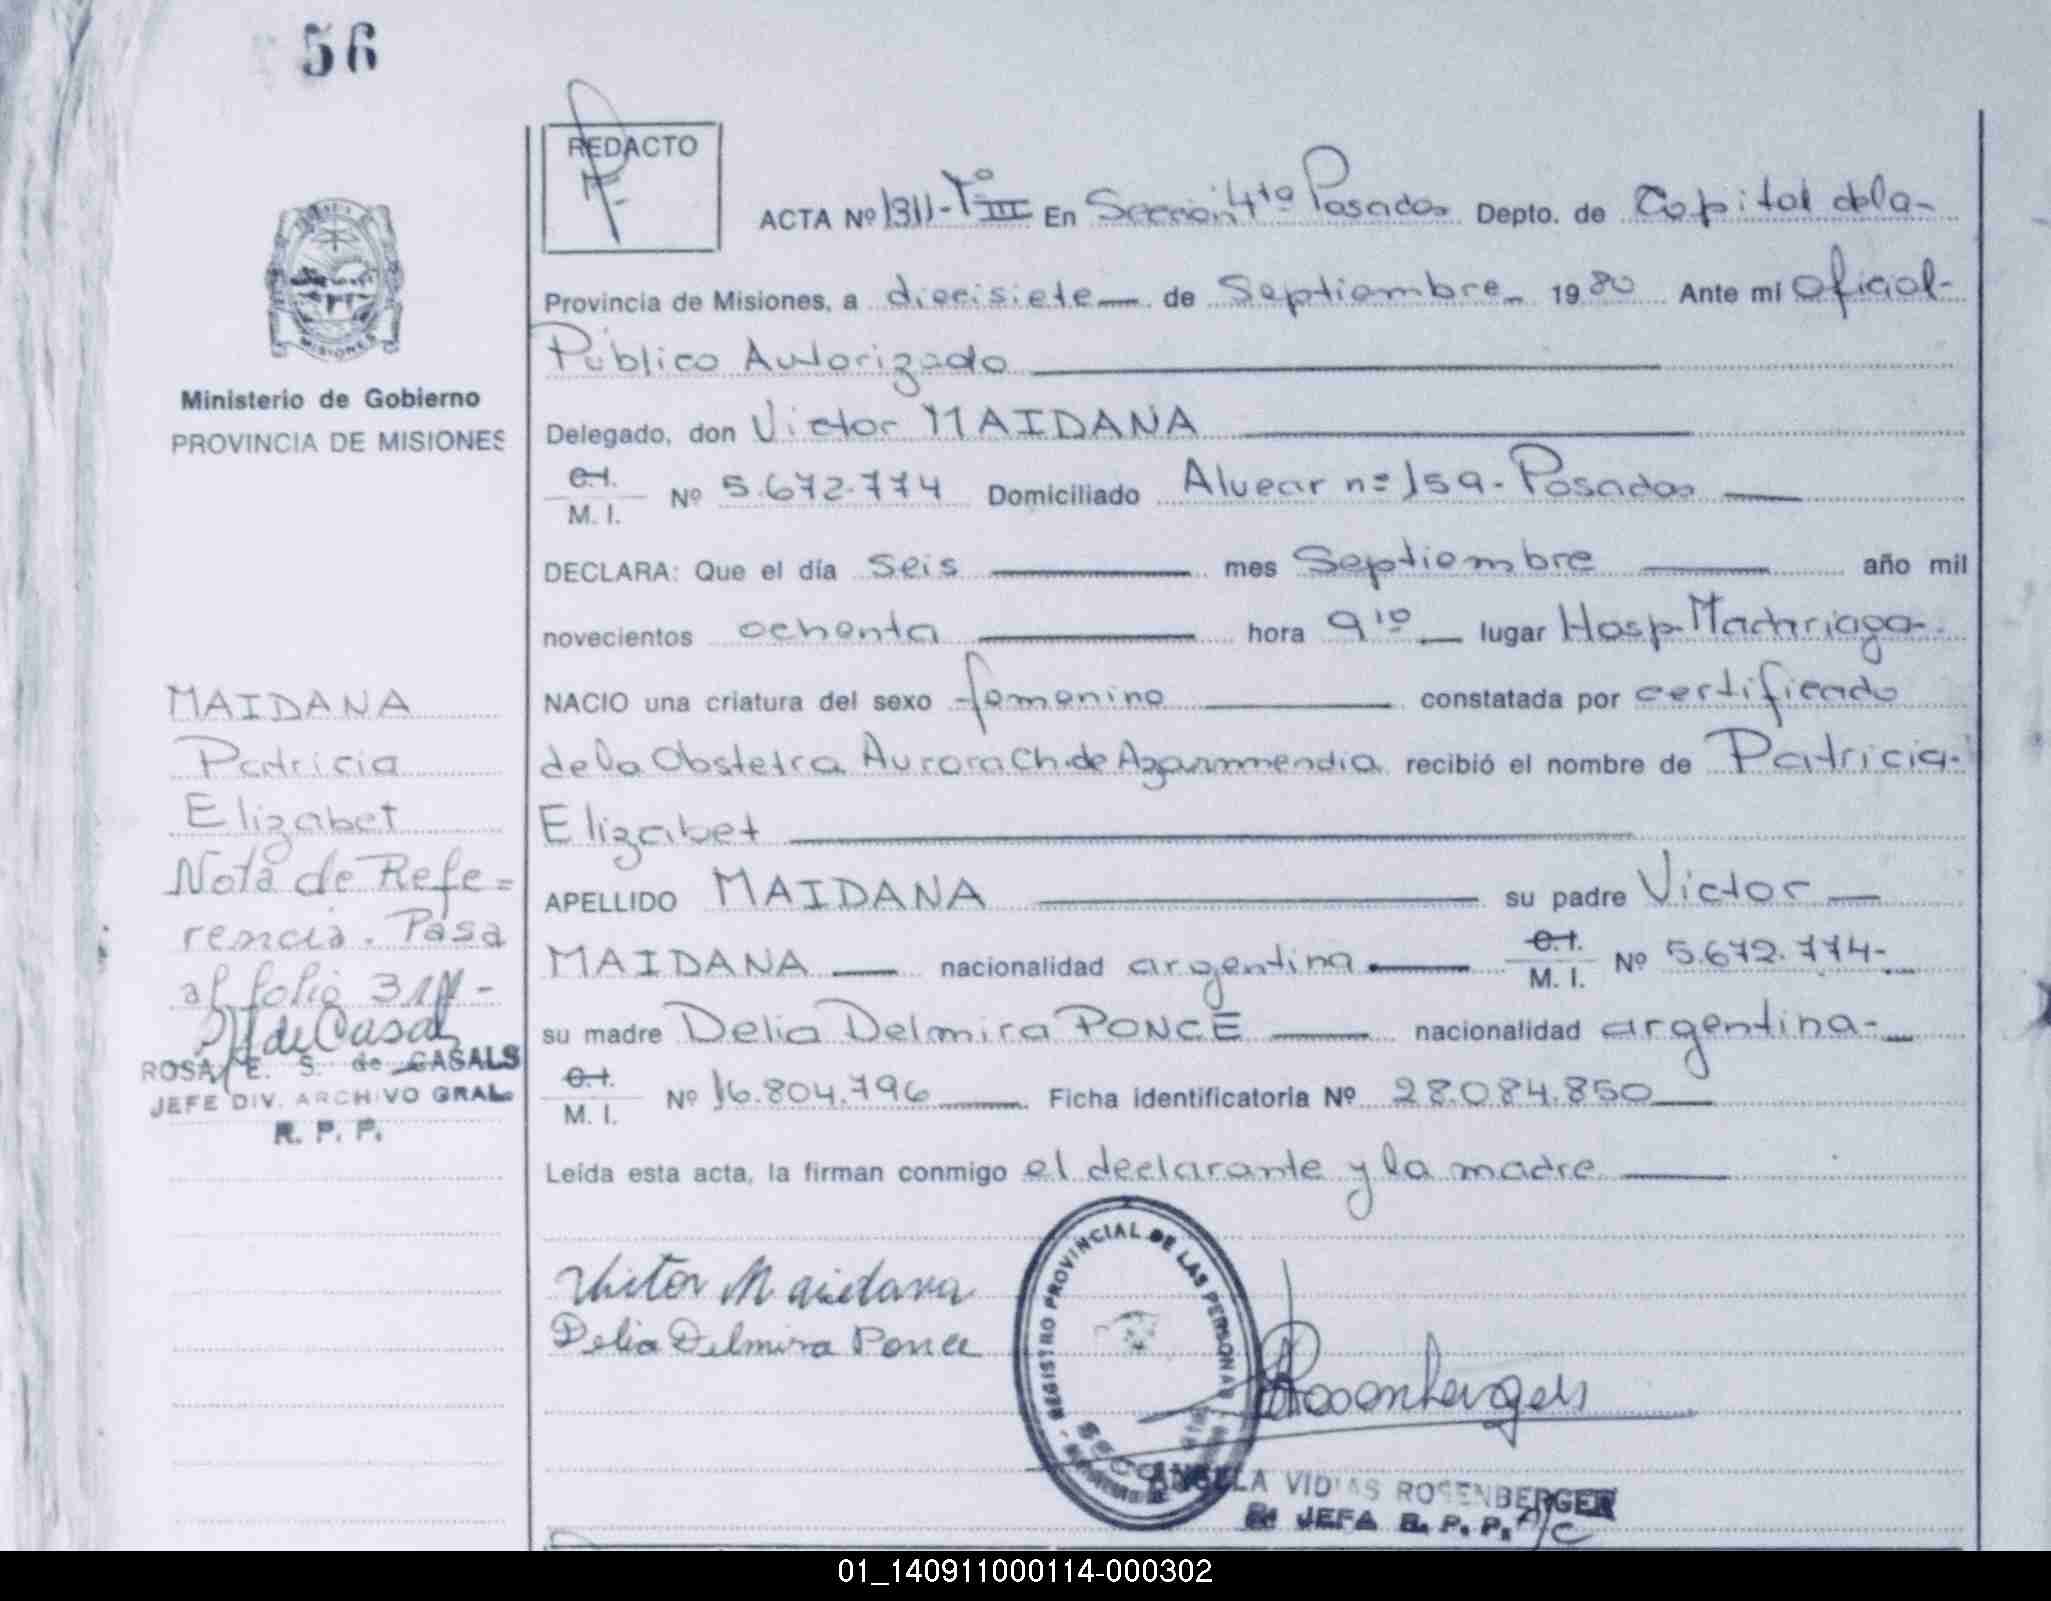 56
REDACTO
ACTA Nº 1311-Tº III En Sección 4ta Posadas Depto. de Capital de la-
Provincia de Misiones, a diecisiete de Septiembre 1980 Ante mí Oficial-
Público Autorizado
Delegado, don Victor MAIDANA
C.I.
M. I. Nº 5.672.774 Domiciliado Alvear nº 159.- Posadas
DECLARA: Que el día seis mes Septiembre año mil
novecientos ochenta hora 9 10 lugar Hosp. Madariaga-
NACIO una criatura del sexo femenino constatada por certificado
de la Obstetra Aurora Ch. de Azarmendia recibió el nombre de Patricia-
Elizabet
APELLIDO MAIDANA su padre Victor
MAIDANA nacionalidad argentina C.I. M. I. Nº 5.672.774-
su madre Delia Delmira PONCE nacionalidad argentina-
C.I.
M. I. Nº 16.804.796 Ficha identificatoria Nº 28.084.850
Leída esta acta, la firman conmigo el declarante y la madre
Victor Maidana
Delia Delmira Ponce
REGISTRO PROVINCIAL DE LAS PERSONAS
Rosenberger
ANGELA VIDIAS ROSENBERGER
JEFA R. P. P. A/C
MISIONES
Ministerio de Gobierno
PROVINCIA DE MISIONES
MAIDANA
Patricia
Elizabet
Nota de Refe=
rencia. Pasa
al folio 311-
de Casals
ROSA E. S. de CASALS
JEFE DIV. ARCHIVO GRAL.
R. P. P.
01_140911000114-000302